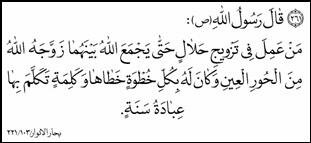 (٢٦) قَالَ رَسُولُ اللهِ (ص):
مَنْ عَمِلَ فِى تَزْوِيجِ حَلَالٍ حَتّٰى يَجْمَعَ اللهُ بَيْنَهُمَا زَوَّجَهُ اللهُ
مِنَ الْحُورِ الْعِينِ وَكَانَ لَهُ بِكُلِّ خُطْوَةٍ خَطَاهَا وَكَلِمَةٍ تَكَلَّمَ بِهَا
عِبَادَةُ سَنَةٍ.
بحار الانوار ٢٢١/١٠٣